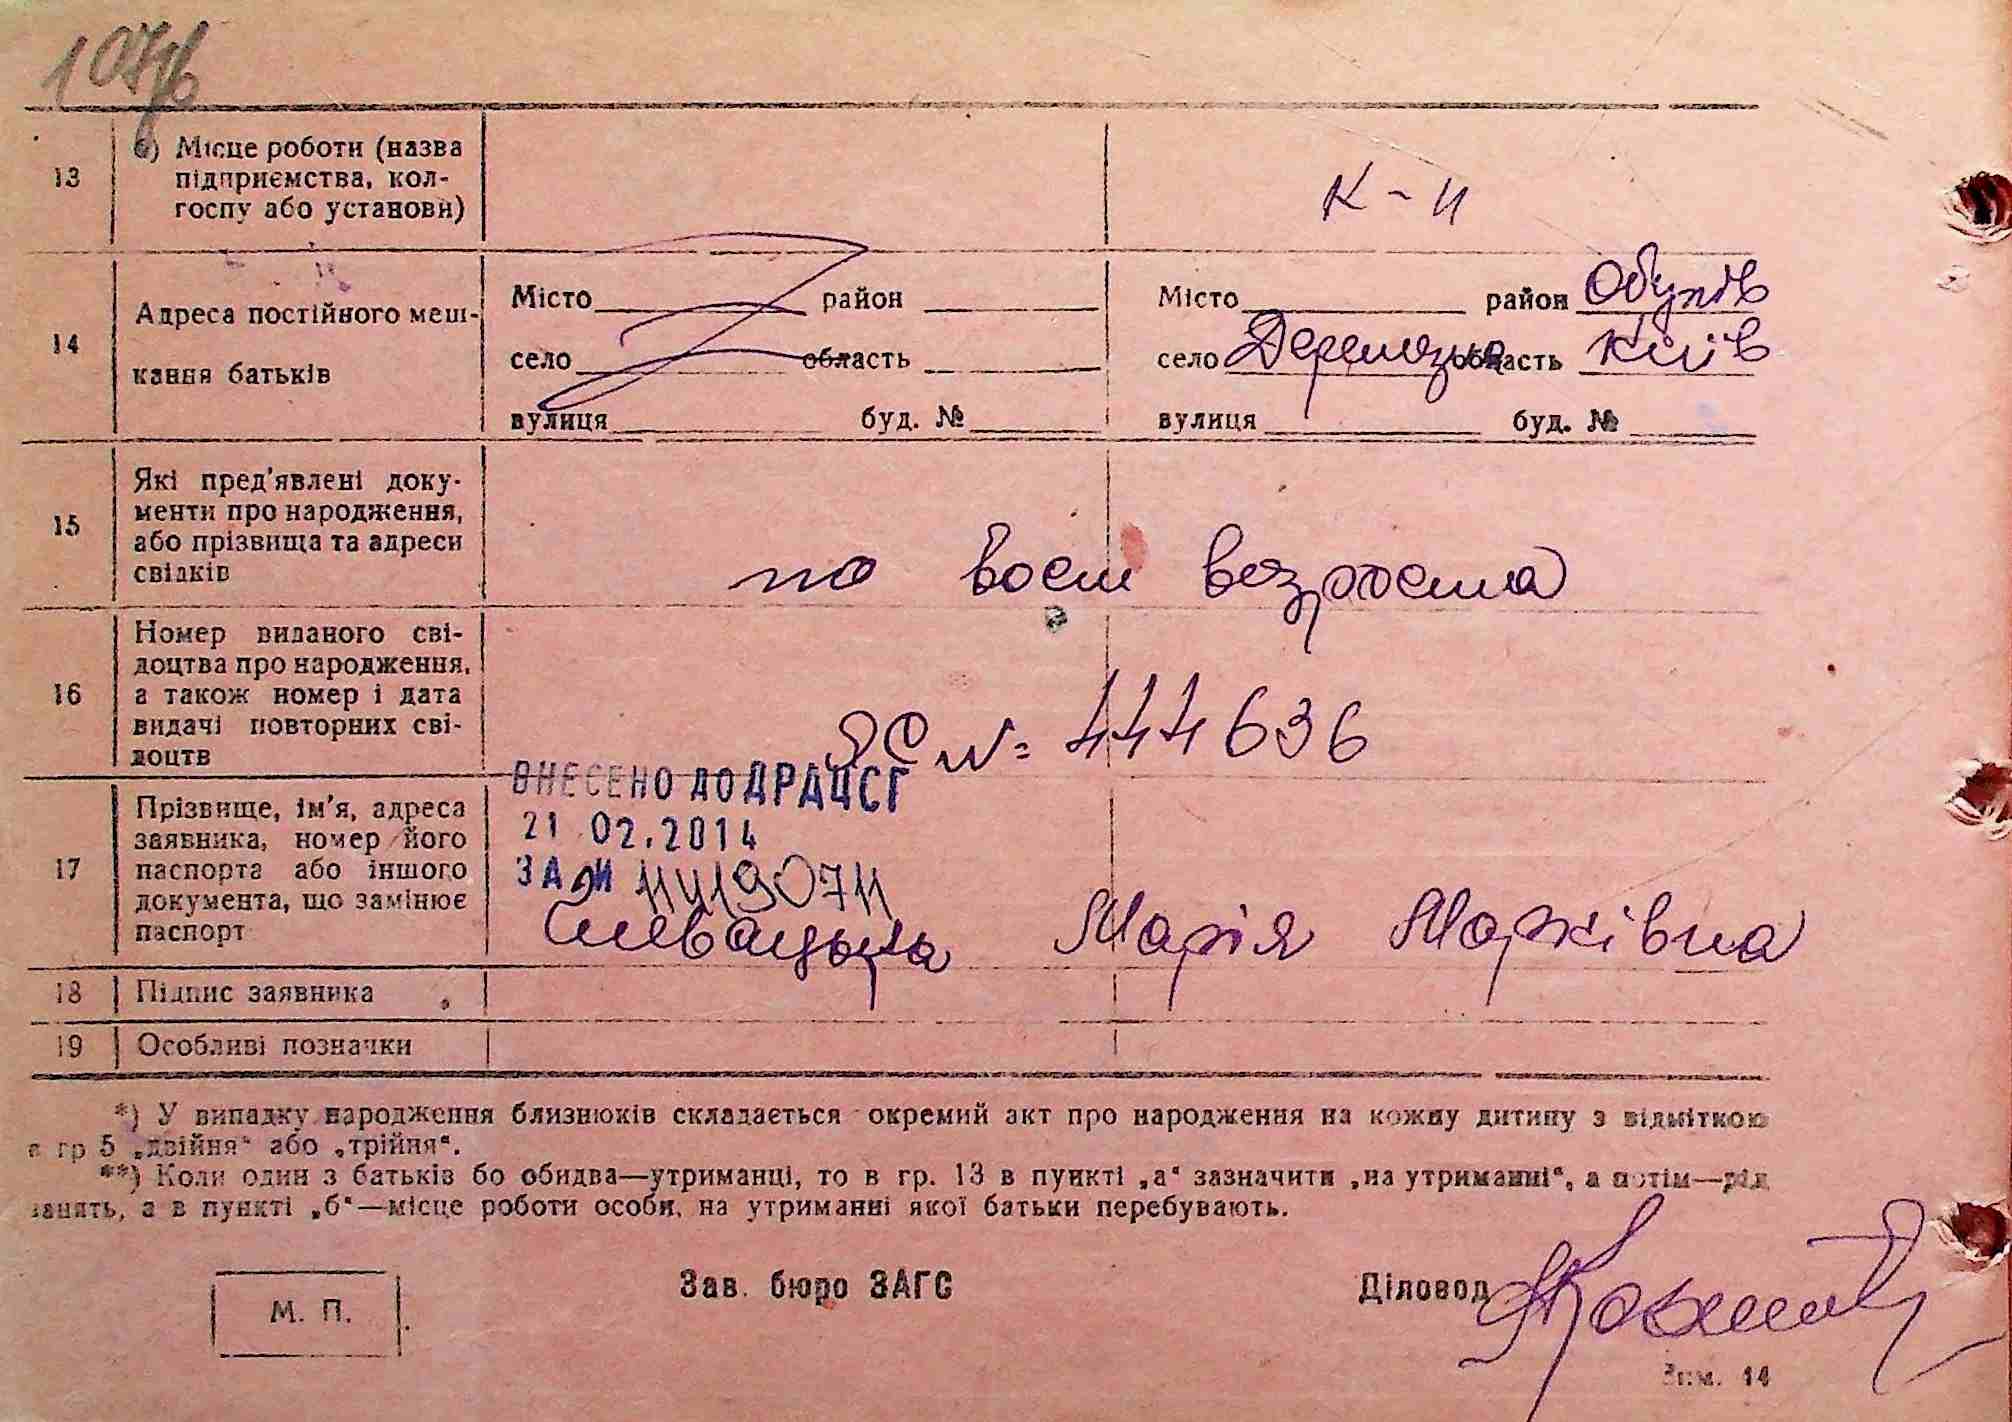 107
13
б) Місце роботи (назва
підприємства, кол-
госпу або установи)
К-п
14
Адреса постійного меш-
кання батьків
Місто район
село область
вулиця буд. №
Місто район Обухів
село Деремезна область Київ
вулиця буд. №
15
Які пред'явлені доку-
менти про народження,
або прізвища та адреси
свідків
по восст возраста
16
Номер виданого сві-
доцтва про народження,
а також номер і дата
видачі повторних сві-
доцтв
ЯС № 444636
ВНЕСЕНО ДО ДРАЦСГ
21 02.2014
ЗА № 11419071
17
Прізвище, ім'я, адреса
заявника, номер його
паспорта або іншого
документа, що замінює
паспорт
Марія Марківна
18 Підпис заявника
19 Особливі позначки
*) У випадку народження близнюків складається окремий акт про народження на кожну дитину з відміткою
в гр 5 „двійня“ або „трійня“.
**) Коли один з батьків бо обидва—утриманці, то в гр. 13 в пункті „а“ зазначити „на утриманні“, а потім—рід
занять, а в пункті „б“—місце роботи особи, на утриманні якої батьки перебувають.
М. П.
Зав. бюро ЗАГС
Діловод
Зам. 14